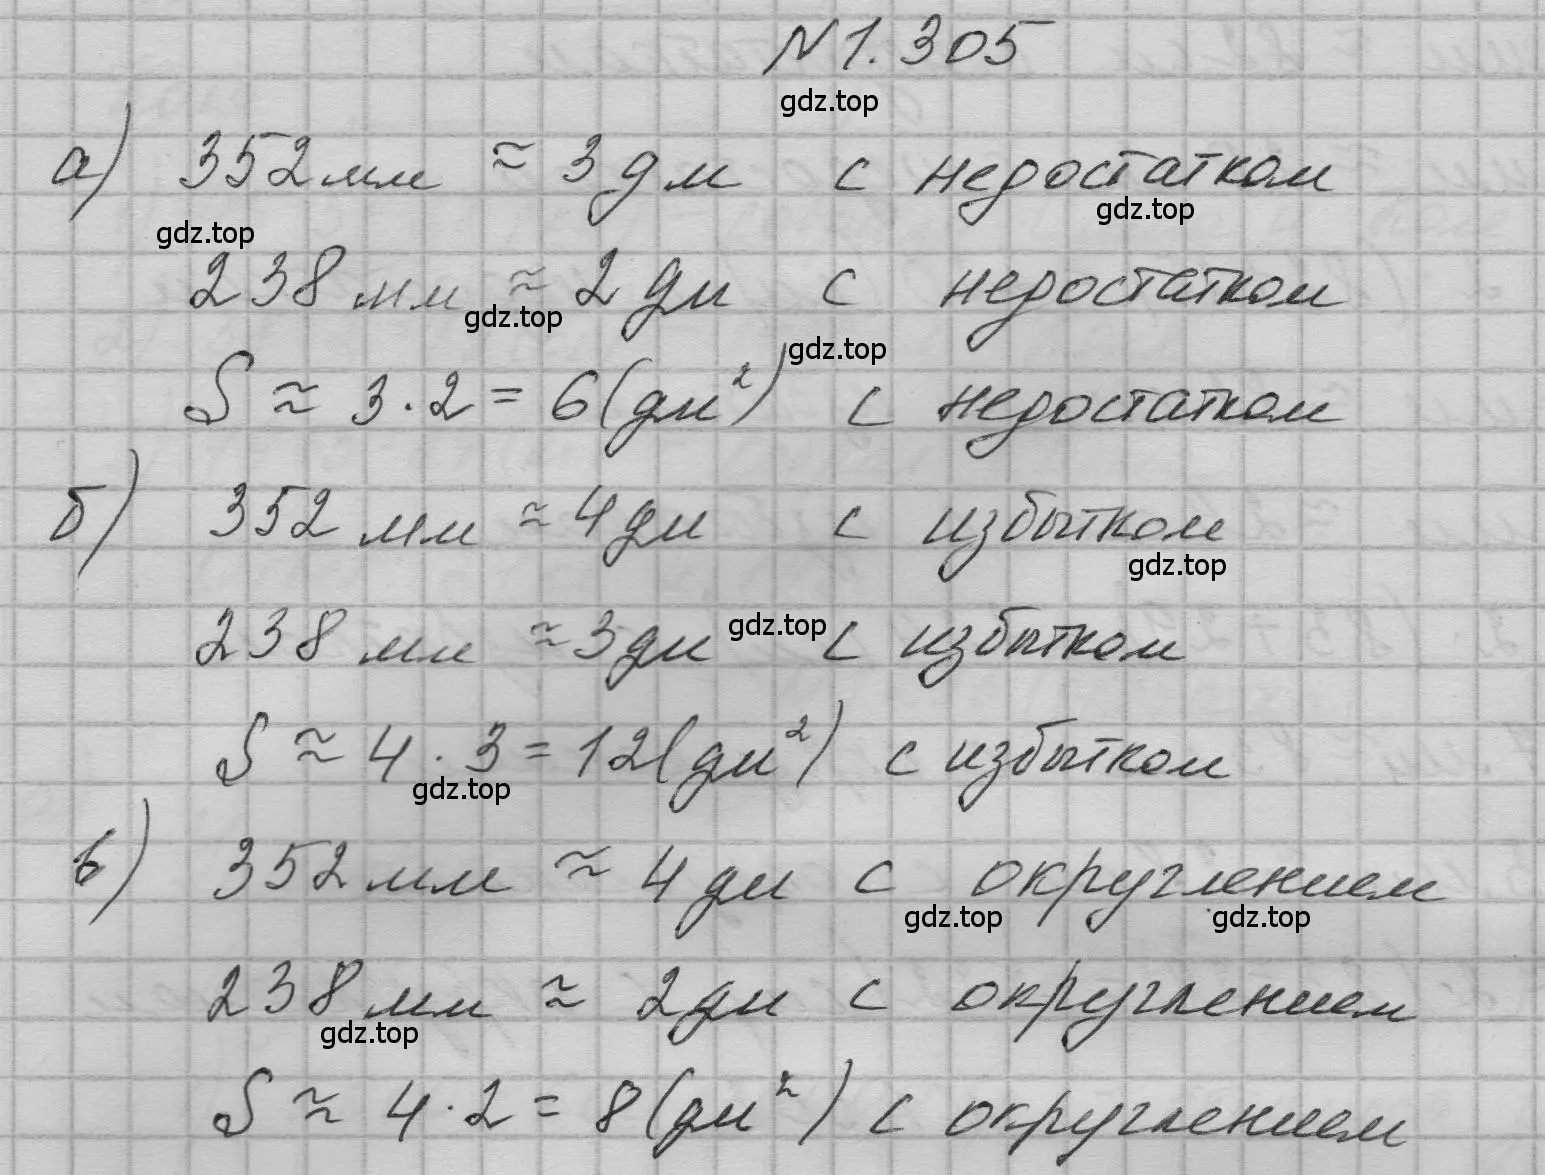 N 1. 305
gdz.top
а) 352 мм ≈ 3 дм с недостатком
gdz.top gdz.top
238 мм ≈ 2 дм с недостатком
gdz.top gdz.top
S ≈ 3 · 2 = 6 (дм²) с недостатком
б) 352 мм ≈ 4 дм с избытком
gdz.top
238 мм ≈ 3 дм gdz.top с избытком
S ≈ 4 · 3 = 12 (дм²) с избытком
gdz.top
в) 352 мм ≈ 4 дм с округлением
gdz.top gdz.top
238 мм ≈ 2 дм с округлением
gdz.top
S ≈ 4 · 2 = 8 (дм²) с округлением